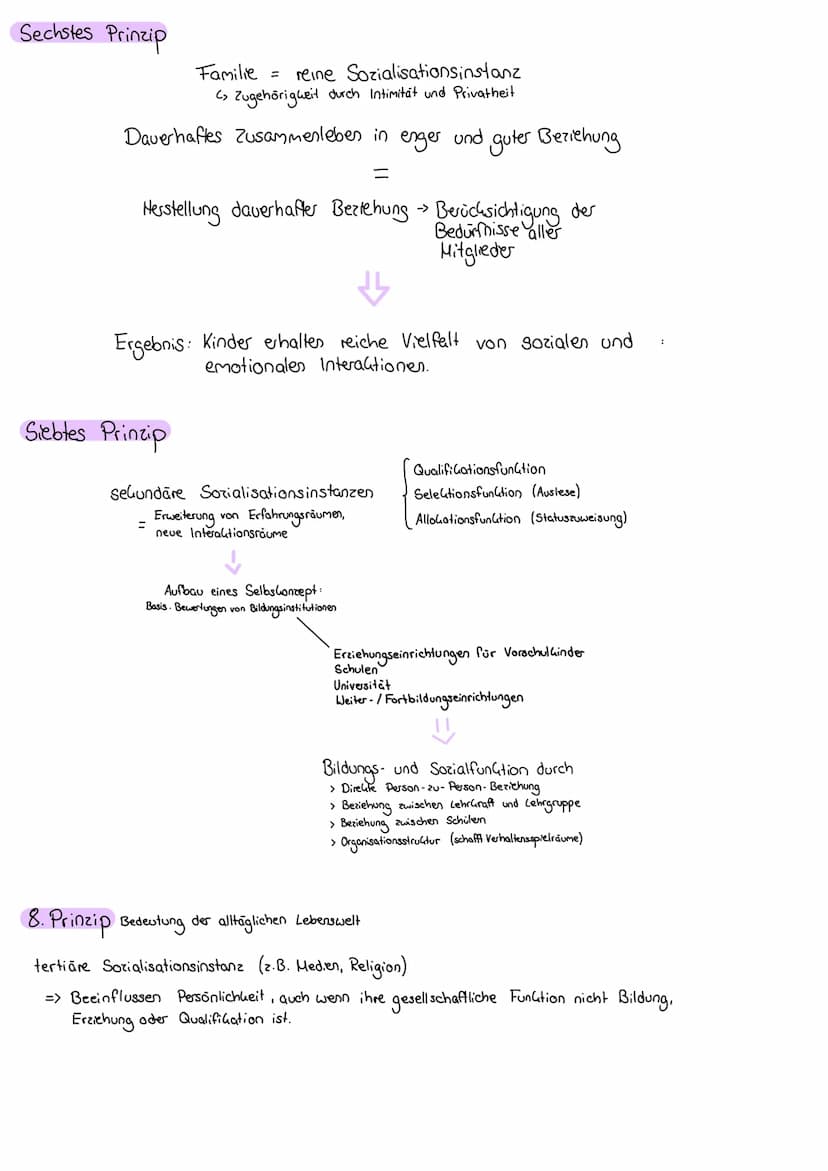 Sechstes Prinzip
Familie = reine Sozialisationsinstanz
↳ Zugehörigkeit durch Intimität und Privatheit
Dauerhaftes Zusammenleben in enger und guter Beziehung
=
Herstellung dauerhafter Beziehung → Berücksichtigung der
Bedürfnisse aller
Mitglieder
Ergebnis: Kinder erhalten reiche Vielfalt von sozialen und :
emotionalen Interaktionen.
Siebtes Prinzip
sekundäre Sozialisationsinstanzen
= Erweiterung von Erfahrungsräumen,
neue Interaktionsräume
Qualifikationsfunktion
Selektionsfunktion (Auslese)
Allokationsfunktion (Statuszuweisung)
Aufbau eines Selbskonzept:
Basis. Bewertungen von Bildungsinstitutionen
Erziehungseinrichtungen für Vorschulkinder
Schulen
Universität
Weiter- / Fortbildungseinrichtungen
Bildungs- und Sozialfunktion durch
> Direkte Person-zu-Person-Beziehung
> Beziehung zwischen Lehrkraft und Lehrgruppe
> Beziehung zwischen Schülern
> Organisationsstruktur (schafft Verhaltensspielräume)
8. Prinzip Bedeutung der alltäglichen Lebenswelt
tertiäre Sozialisationsinstanz (z.B. Medien, Religion)
=> Beeinflussen Persönlichkeit, auch wenn ihre gesellschaftliche Funktion nicht Bildung,
Erziehung oder Qualifikation ist.